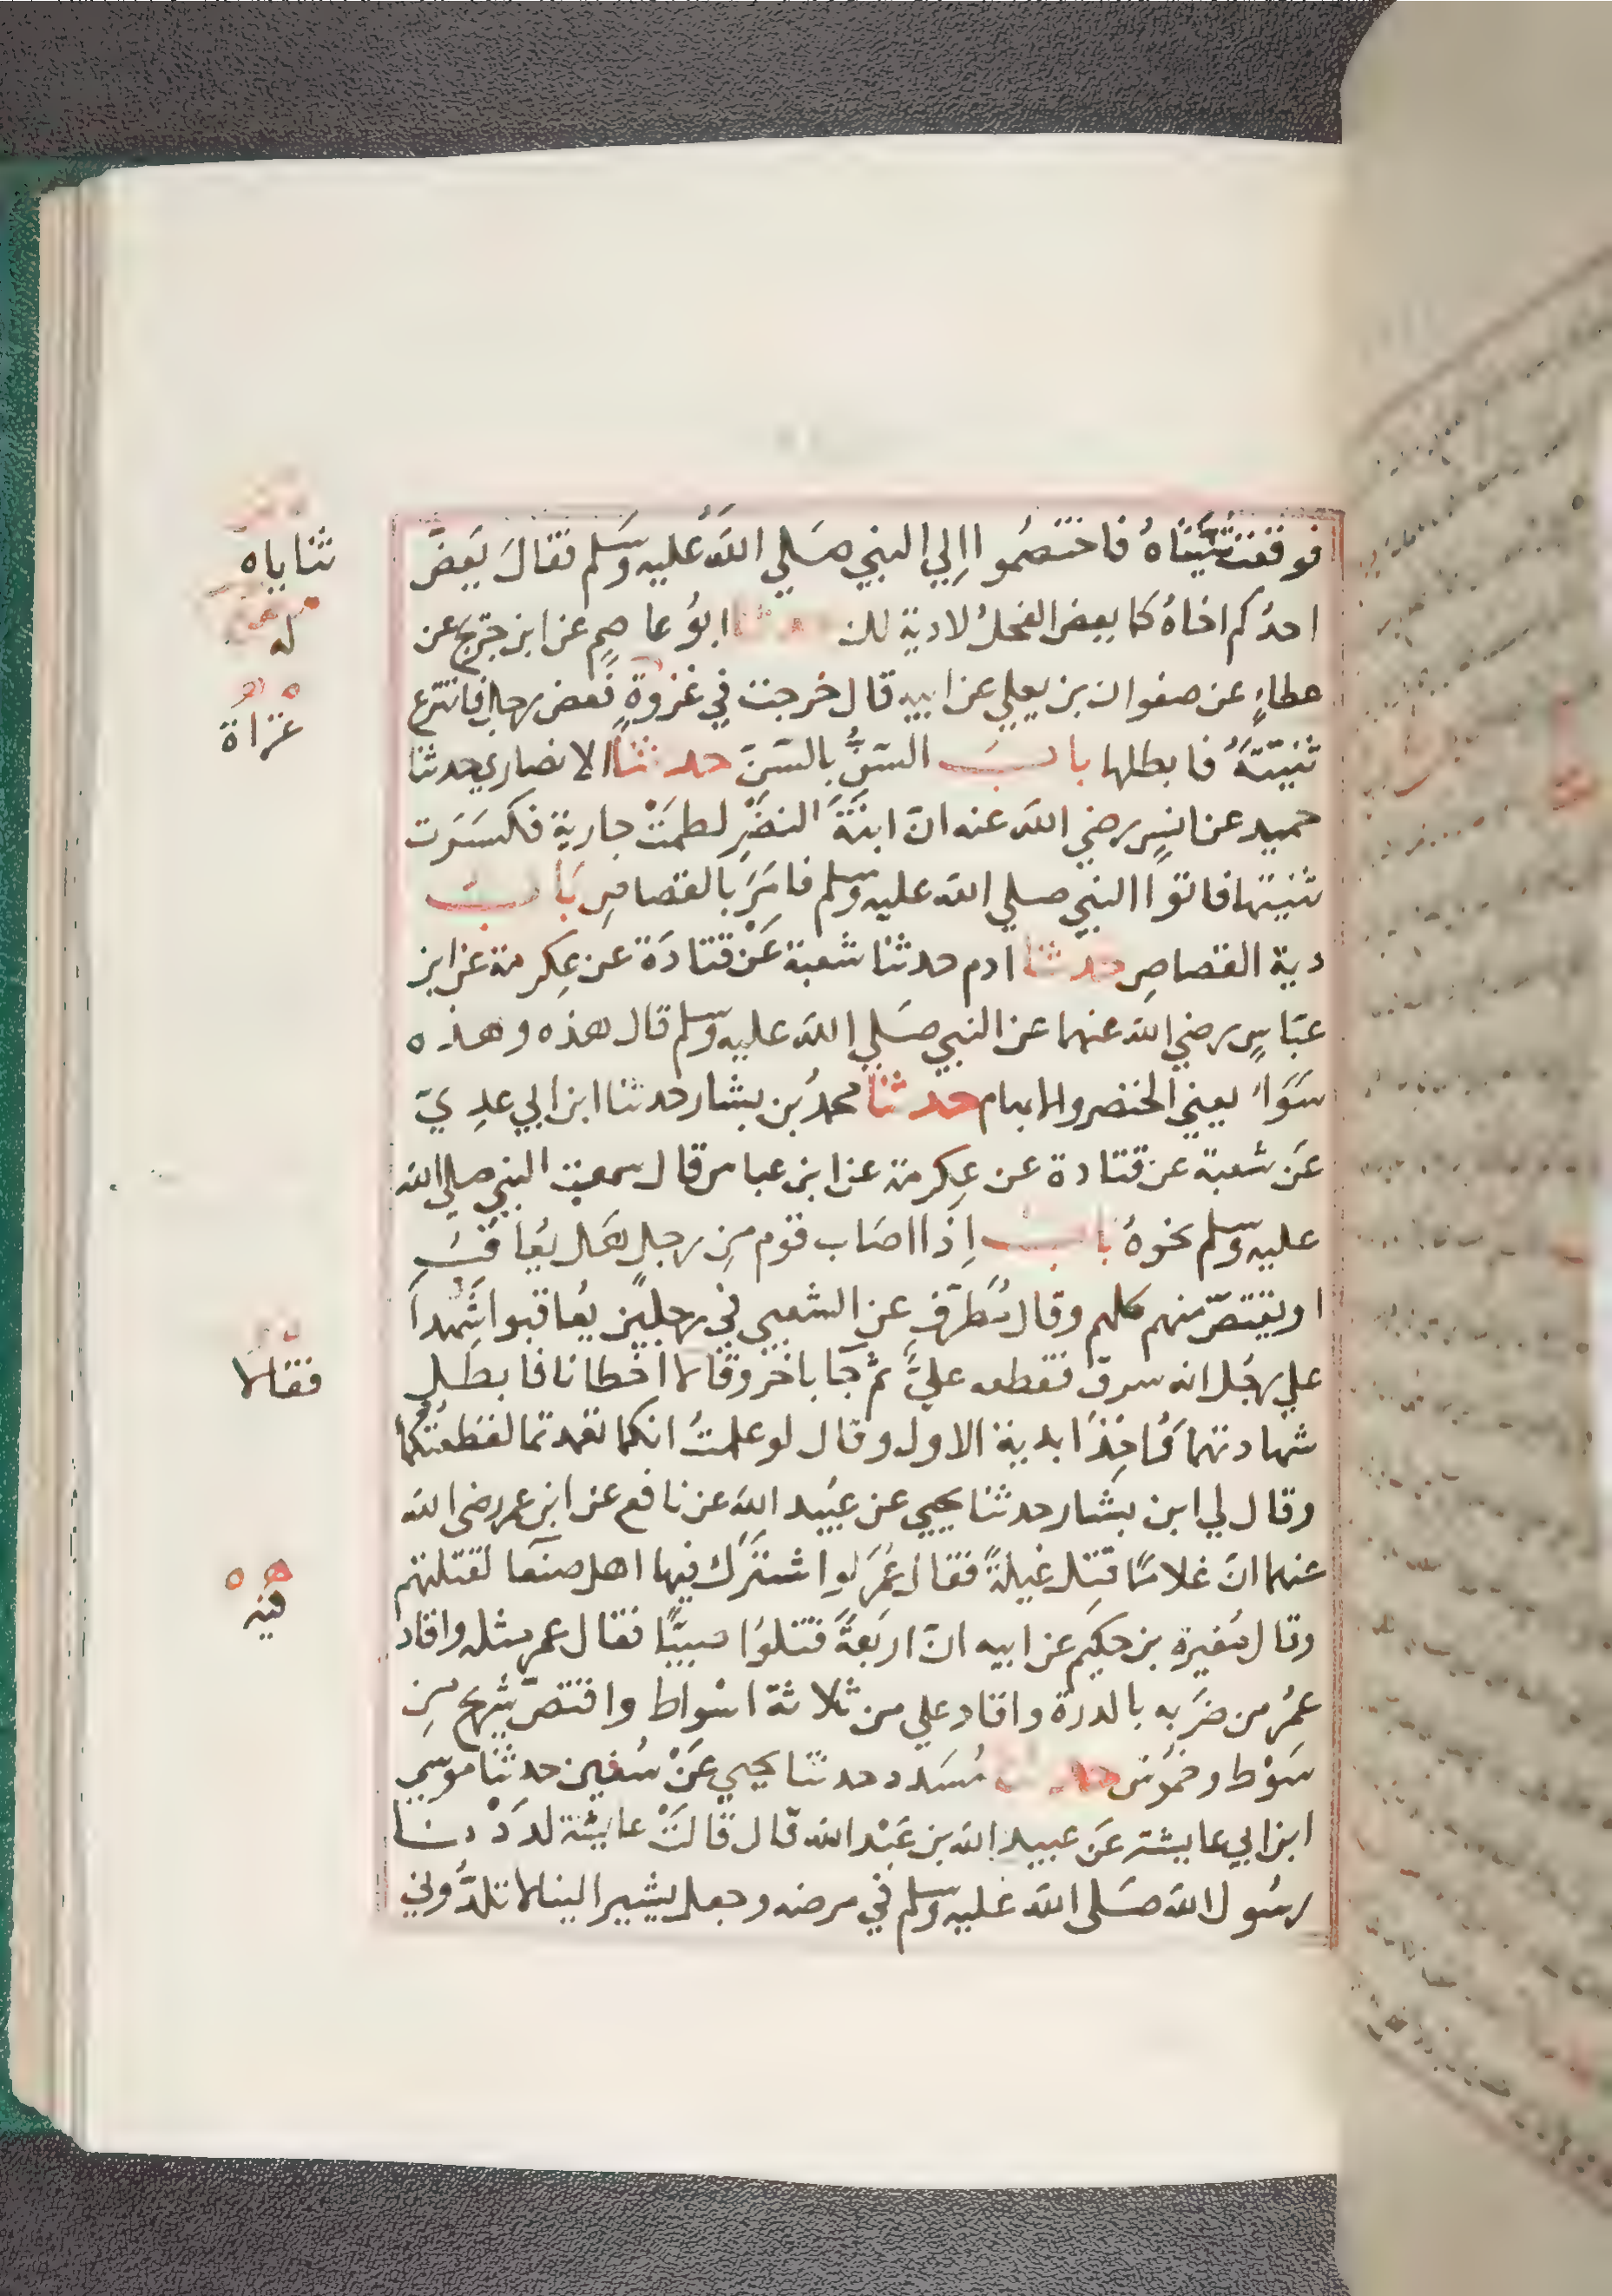 فوقعت ثنيتاه فاختصموا الي النبي صلي الله عليه وسلم فقال يعض
احدكم اخاه كما يعض الفحل لا دية لك حدثنا ابو عاصم عن ابن جريج عن
عطاء عن صفوان بن يعلي عن ابيه قال خرجت في غزوة فعض رجل فانتزع
ثنيته فابطلها باب السن بالسن حدثنا الانصاري حدثنا
حميد عن انس رضي الله عنه ان ابنة النضر لطمت جارية فكسرت
ثنيتها فاتوا النبي صلي الله عليه وسلم فامر بالقصاص باب
دية القصاص حدثنا ادم حدثنا شعبة عن قتادة عن عكرمة عن ابن
عباس رضي الله عنهما عن النبي صلي الله عليه وسلم قال هذه وهذه
سواء يعني الخنصر والابهام حدثنا محمد بن بشار حدثنا ابن ابي عدي
عن شعبة عن قتادة عن عكرمة عن ابن عباس قال سمعت النبي صلي الله
عليه وسلم نحوه باب اذا اصاب قوم من رجل هل يعاقب
او يقتص منهم كلهم وقال مطرف عن الشعبي في رجلين يعاقبوا شهدا
علي رجل انه سرق فقطعه علي ثم جآ باخر وقالا اخطانا فابطل
شهادتهما فاخذا بدية الاول وقال لو علمت انكما تعمدتما لقطعتكما
وقال لي ابن بشار حدثنا يحيي عن عبيد الله عن نافع عن ابن عمر رضي الله
عنهما ان غلاما قتل غيلة فقال عمر لو اشترك فيها اهل صنعا لقتلتهم
وقال مغيرة بن حكيم عن ابيه ان اربعة قتلوا صبيا فقال عمر مثله واقاد
عمر من ضربه بالدرة واقاد علي من ثلاثة اسواط واقتص شريح من
سوط وخموش حدثنا مسدد حدثنا يحيي عن سفين حدثنا موسي
ابن ابي عايشة عن عبيد الله بن عبد الله قال قالت عايشة لددنا
رسول الله صلى الله عليه وسلم في مرضه وجعل يشير الينا لا تلدوني
ثناياه
له
غزاة
فقالا
فيه